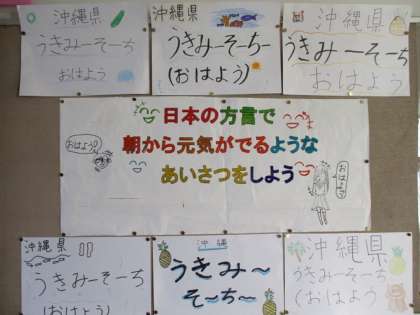 沖縄県
うきみーそーち
おはよう
沖縄県
うきみーそーち
(おはよう)
沖縄県
うきみーそーち
おはよう
日本の方言で
朝から元気がでるような
あいさつをしよう
おはよう
おはよう
沖縄県
うきみーそーち
(おはよう)
沖縄
うきみ〜
そ〜ち〜
沖縄県
うきみーそーち
(おはよう